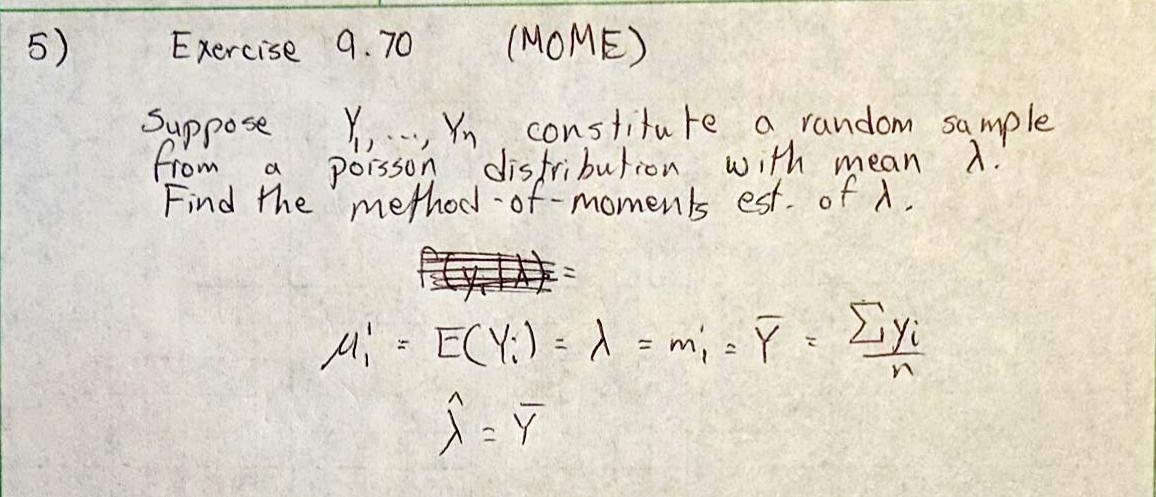 5) Exercise 9.70 (MOME)
Suppose Y₁, ..., Yₙ constitute a random sample
from a poisson distribution with mean λ.
Find the method-of-moments est. of λ.
=
μ₁' = E(Yᵢ) = λ = m₁' = Ȳ = Σyᵢ/n
λ̂ = Ȳ